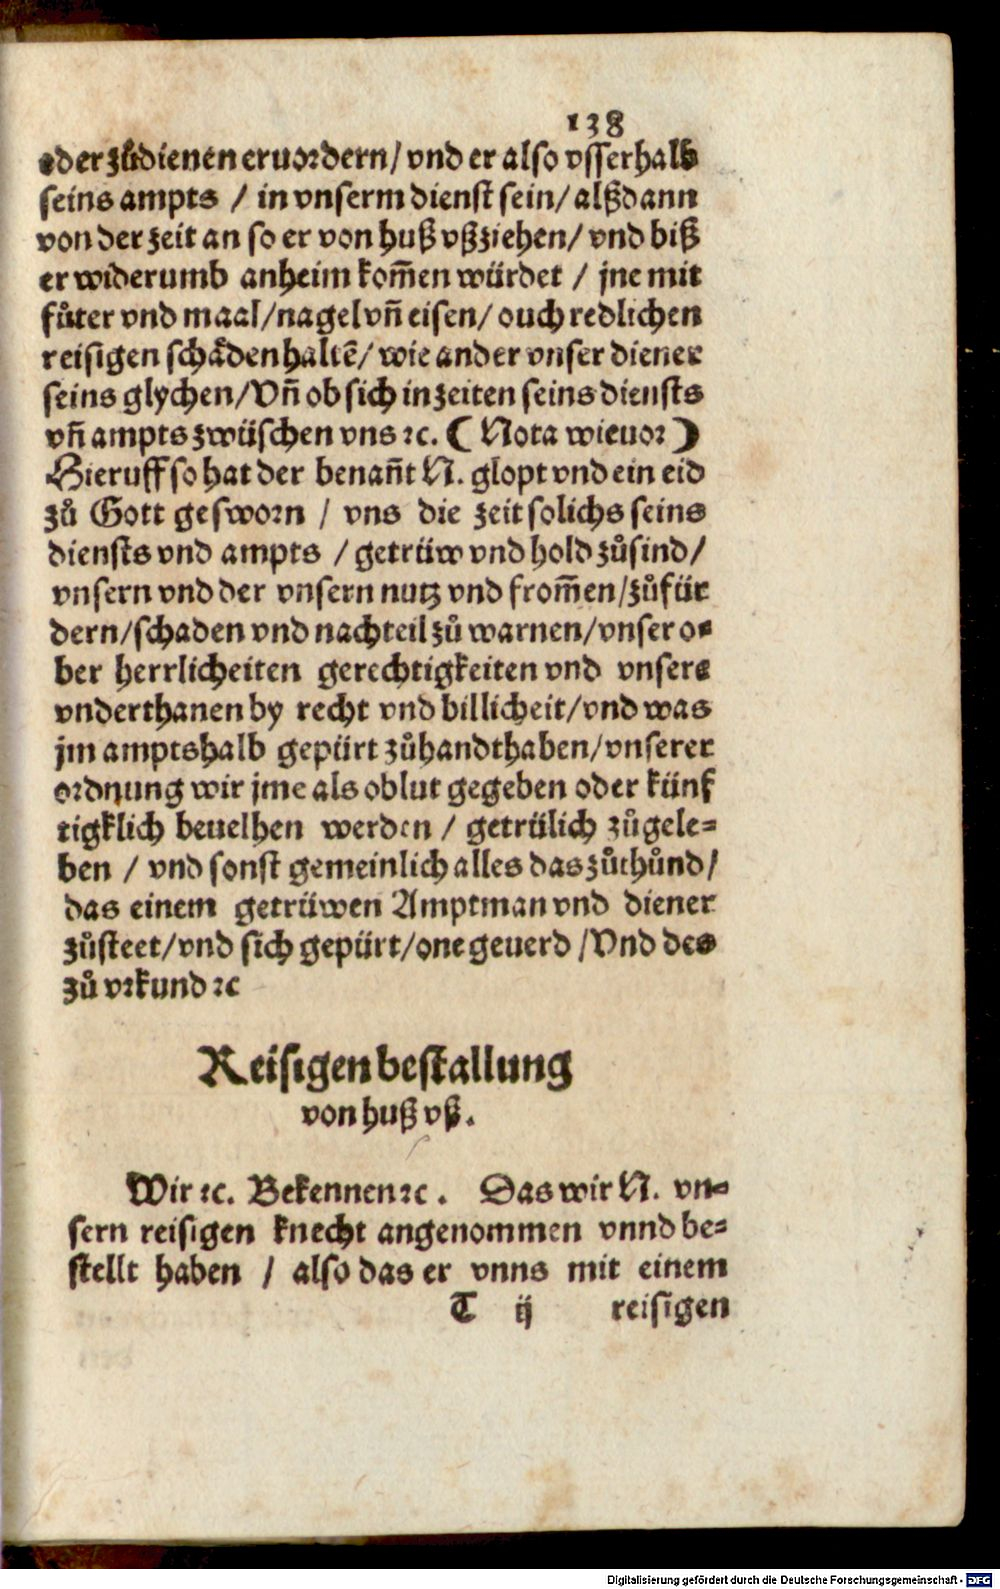 138
oder zůdienen eruordern/ vnd er also vsserhalb
seins ampts / in vnserm dienst sein/ alßdann
von der zeit an so er von huß vßziehen/ vnd biß
er widerumb anheim kom̄en würdet / jne mit
fůter vnd maal/nagel vn̄ eisen/ ouch redlichen
reisigen schådenhaltē/ wie ander vnser diener
seins glychen/Vn̄ ob sich in zeiten seins diensts
vn̄ ampts zwüschen vns ꝛc. ( Nota wieuor )
Hieruff so hat der benan̄t N. glopt vnd ein eid
zů Gott gesworn / vns die zeit solichs seins
diensts vnd ampts / getrüw vnd hold zůsind/
vnsern vnd der vnsern nutz vnd from̄en/zůfür
dern/schaden vnd nachteil zů warnen/vnser o-
ber herrlicheiten gerechtigkeiten vnd vnsere
vnderthanen by recht vnd billicheit/vnd was
jm amptshalb gepürt zůhandthaben/vnserer
ordnung wir jme als oblut gegeben oder künf
tigklich beuelhen werden / getrülich zůgele=
ben / vnd sonst gemeinlich alles das zůthůnd/
das einem getrüwen Amptman vnd diener
zůsteet/vnd sich gepürt/one geuerd /Vnd des
zů vrkund ꝛc
Reisigen bestallung
von huß vß.
Wir ꝛc. Bekennen ꝛc. Das wir N. vn-
sern reisigen knecht angenommen vnnd be=
stellt haben / also das er vnns mit einem
T ij reisigen
Digitalisierung gefördert durch die Deutsche Forschungsgemeinschaft - DFG